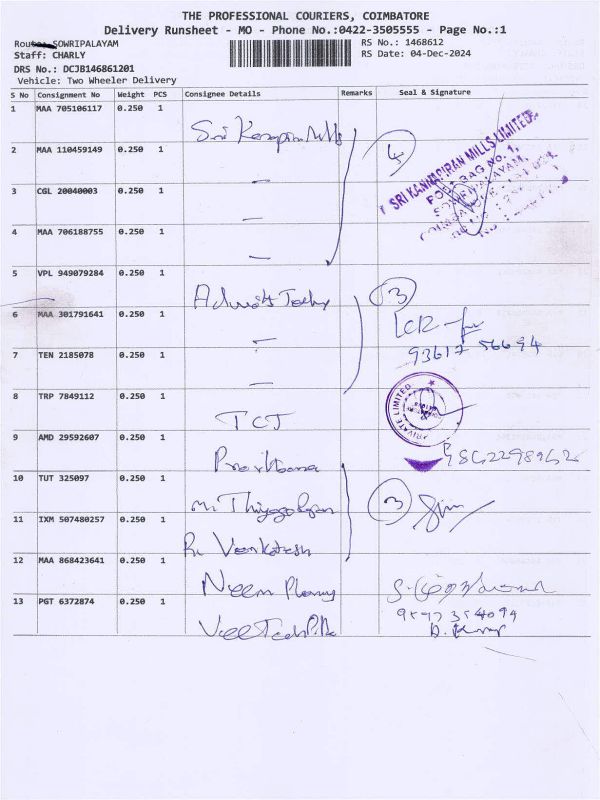 THE PROFESSIONAL COURIERS, COIMBATORE
Delivery Runsheet - MO - Phone No.:0422-3505555 - Page No.:1
Route: SOWRIPALAYAM
RS No.: 1468612
Staff: CHARLY
RS Date: 04-Dec-2024
DRS No.: DCJB146861201
Vehicle: Two Wheeler Delivery
S No Consignment No Weight PCS Consignee Details Remarks Seal & Signature
1 MAA 705106117 0.250 1 Sri Mills
4
SRI KANNAPIRAN MILLS LIMITED
POST BAG No. 1,
SOWRIPALAYAM,
2 MAA 110459149 0.250 1 —
3 CGL 20040003 0.250 1 —
4 MAA 706188755 0.250 1 —
5 VPL 949079284 0.250 1
3
6 MAA 301791641 0.250 1 —
LCR
93617 56694
7 TEN 2185078 0.250 1 —
8 TRP 7849112 0.250 1 TCI
PRIVATE LIMITED
9 AMD 29592607 0.250 1
10 TUT 325097 0.250 1
3
11 IXM 507480257 0.250 1 Venkatesh
12 MAA 868423641 0.250 1 Neem
13 PGT 6372874 0.250 1